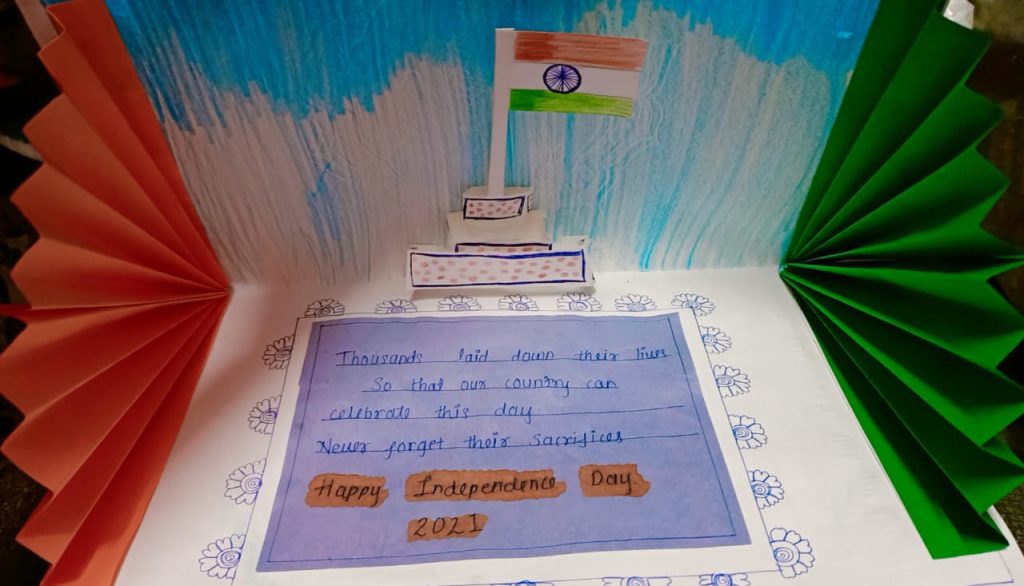 Thousands laid down their lives
So that our country can
celebrate this day.
Never forget their Sacrifices
Happy Independence Day
2021